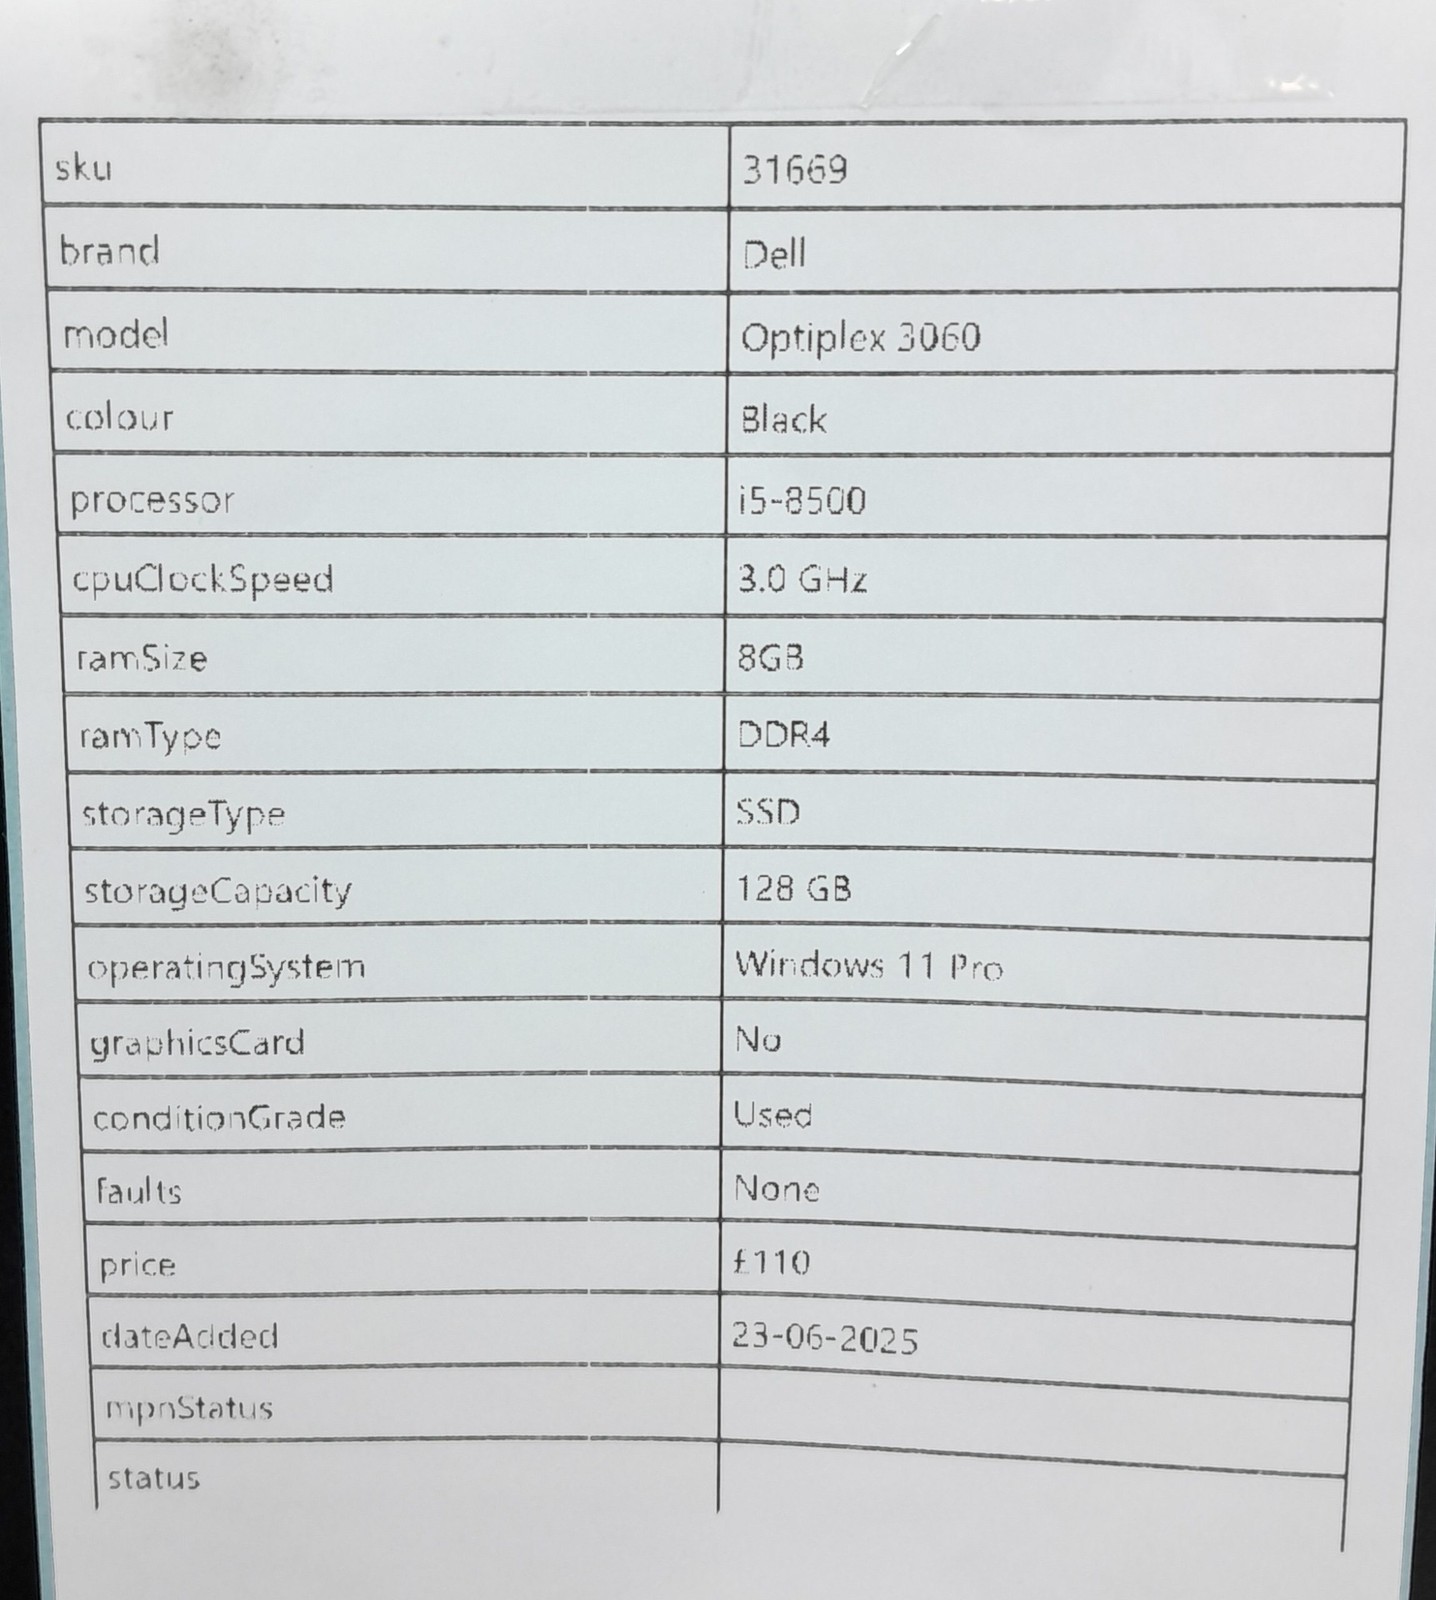 sku 31669
brand Dell
model Optiplex 3060
colour Black
processor i5-8500
cpuClockSpeed 3.0 GHz
ramSize 8GB
ramType DDR4
storageType SSD
storageCapacity 128 GB
operatingSystem Windows 11 Pro
graphicsCard No
conditionGrade Used
faults None
price £110
dateAdded 23-06-2025
mpnStatus
status